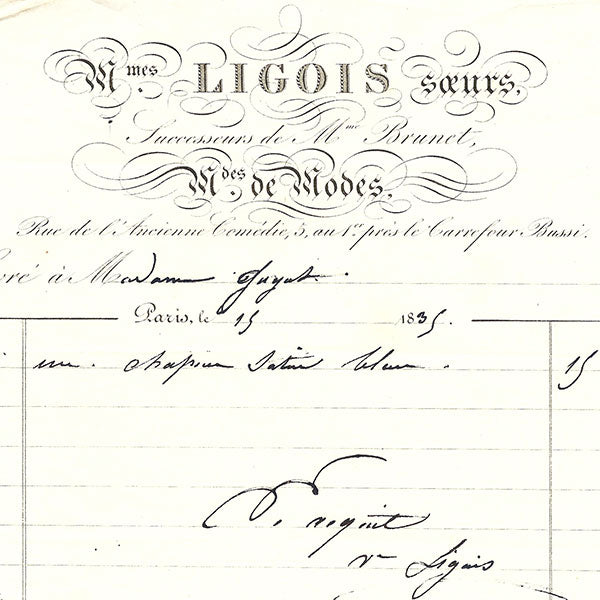 Mmes LIGOIS sœurs,
Successeurs de Mme Brunet,
Mdes de Modes,
Rue de l'Ancienne Comédie, 5, au 1er près le Carrefour Bussi.
vré à Madame
Paris, le 15 1835.
un chapeau satin blanc. 15
Ligois